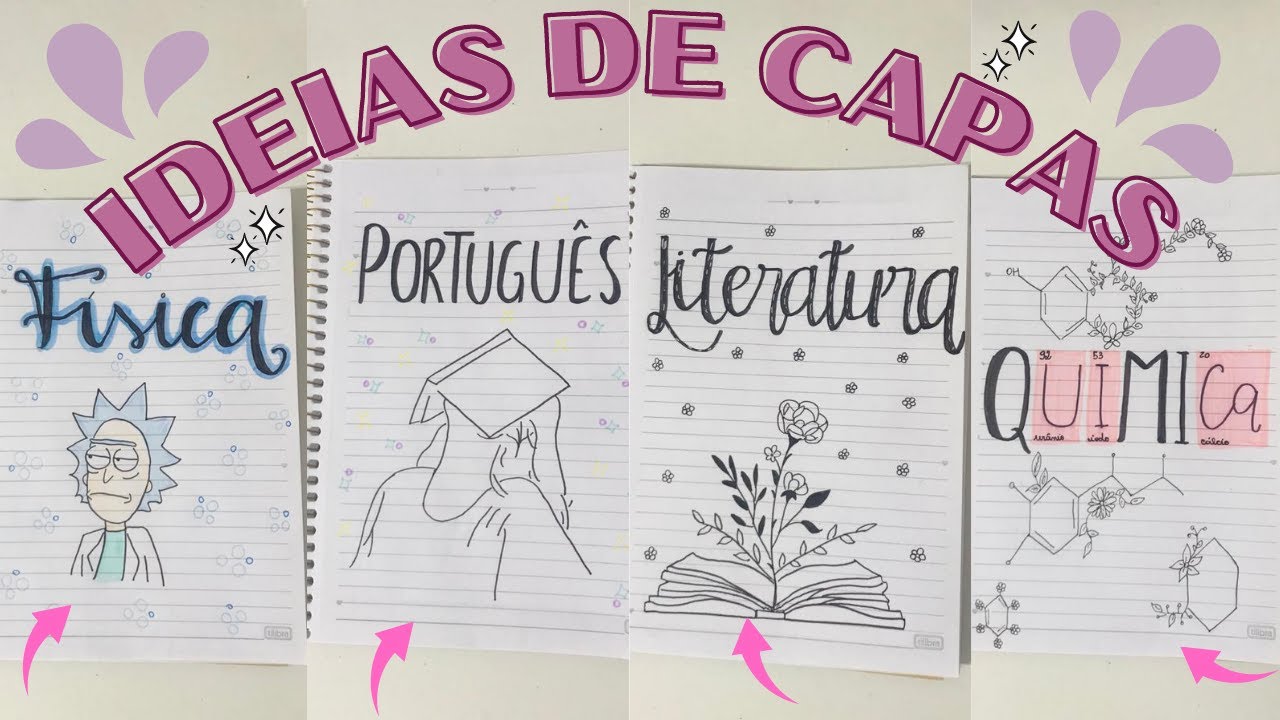 IDEIAS DE CAPAS
Física
tilibra
PORTUGUÊS
Literatura
tilibra
OH
92 53 20
QUIMICa
urânio iodo cálcio
tilibra